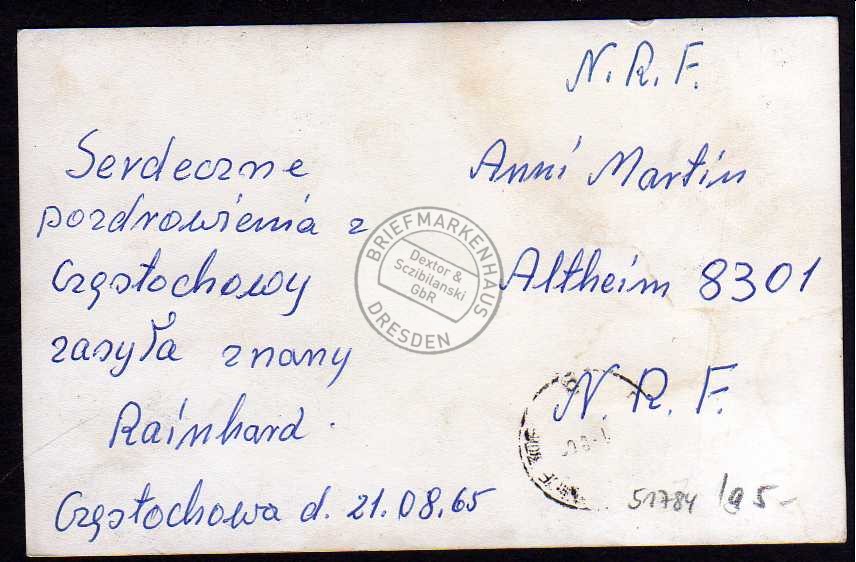 Serdeczne
pozdrowienia z
Częstochowy
zasyła znany
Rainhard.
Częstochowa d. 21.08.65
N. R. F.
Anni Martin
Altheim 8301
N. R. F.
51784
BRIEFMARKENHAUS
Dextor &
Sczibilanski
GbR
DRESDEN